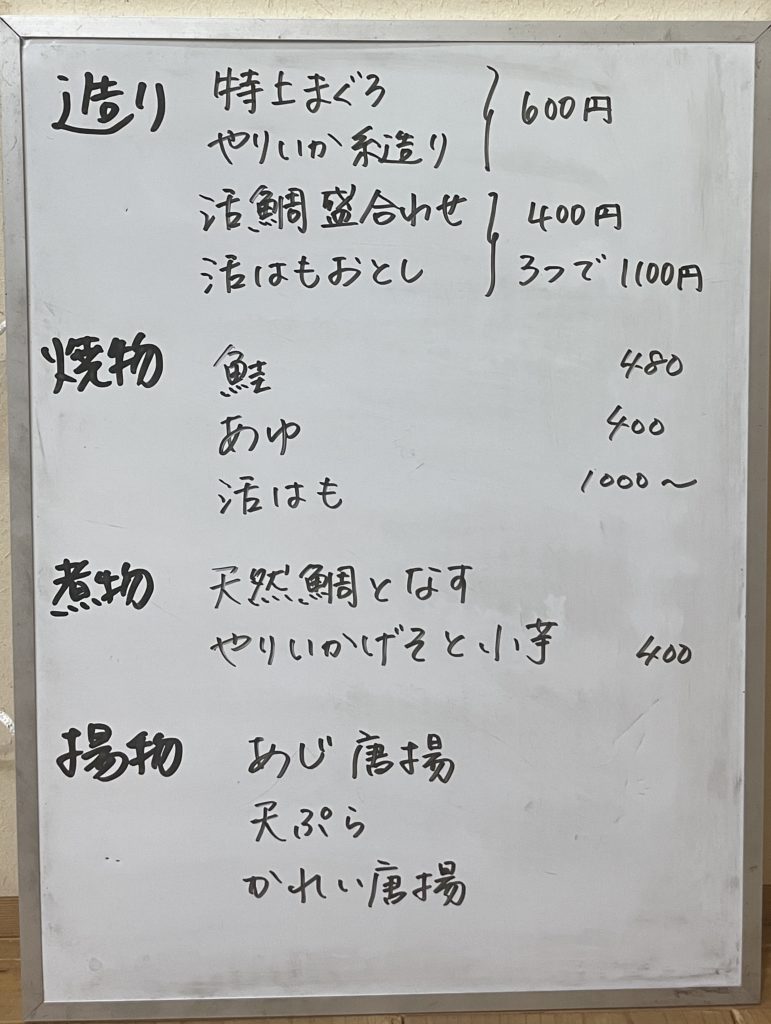 造り 特上まぐろ
やりいか糸造り 600円
活鯛盛合わせ 400円
活はもおとし 3つで 1100円
焼物 鮭 480
あゆ 400
活はも 1000〜
煮物 天然鯛となす
やりいかげそと小芋 400
揚物 あじ唐揚
天ぷら
かれい唐揚